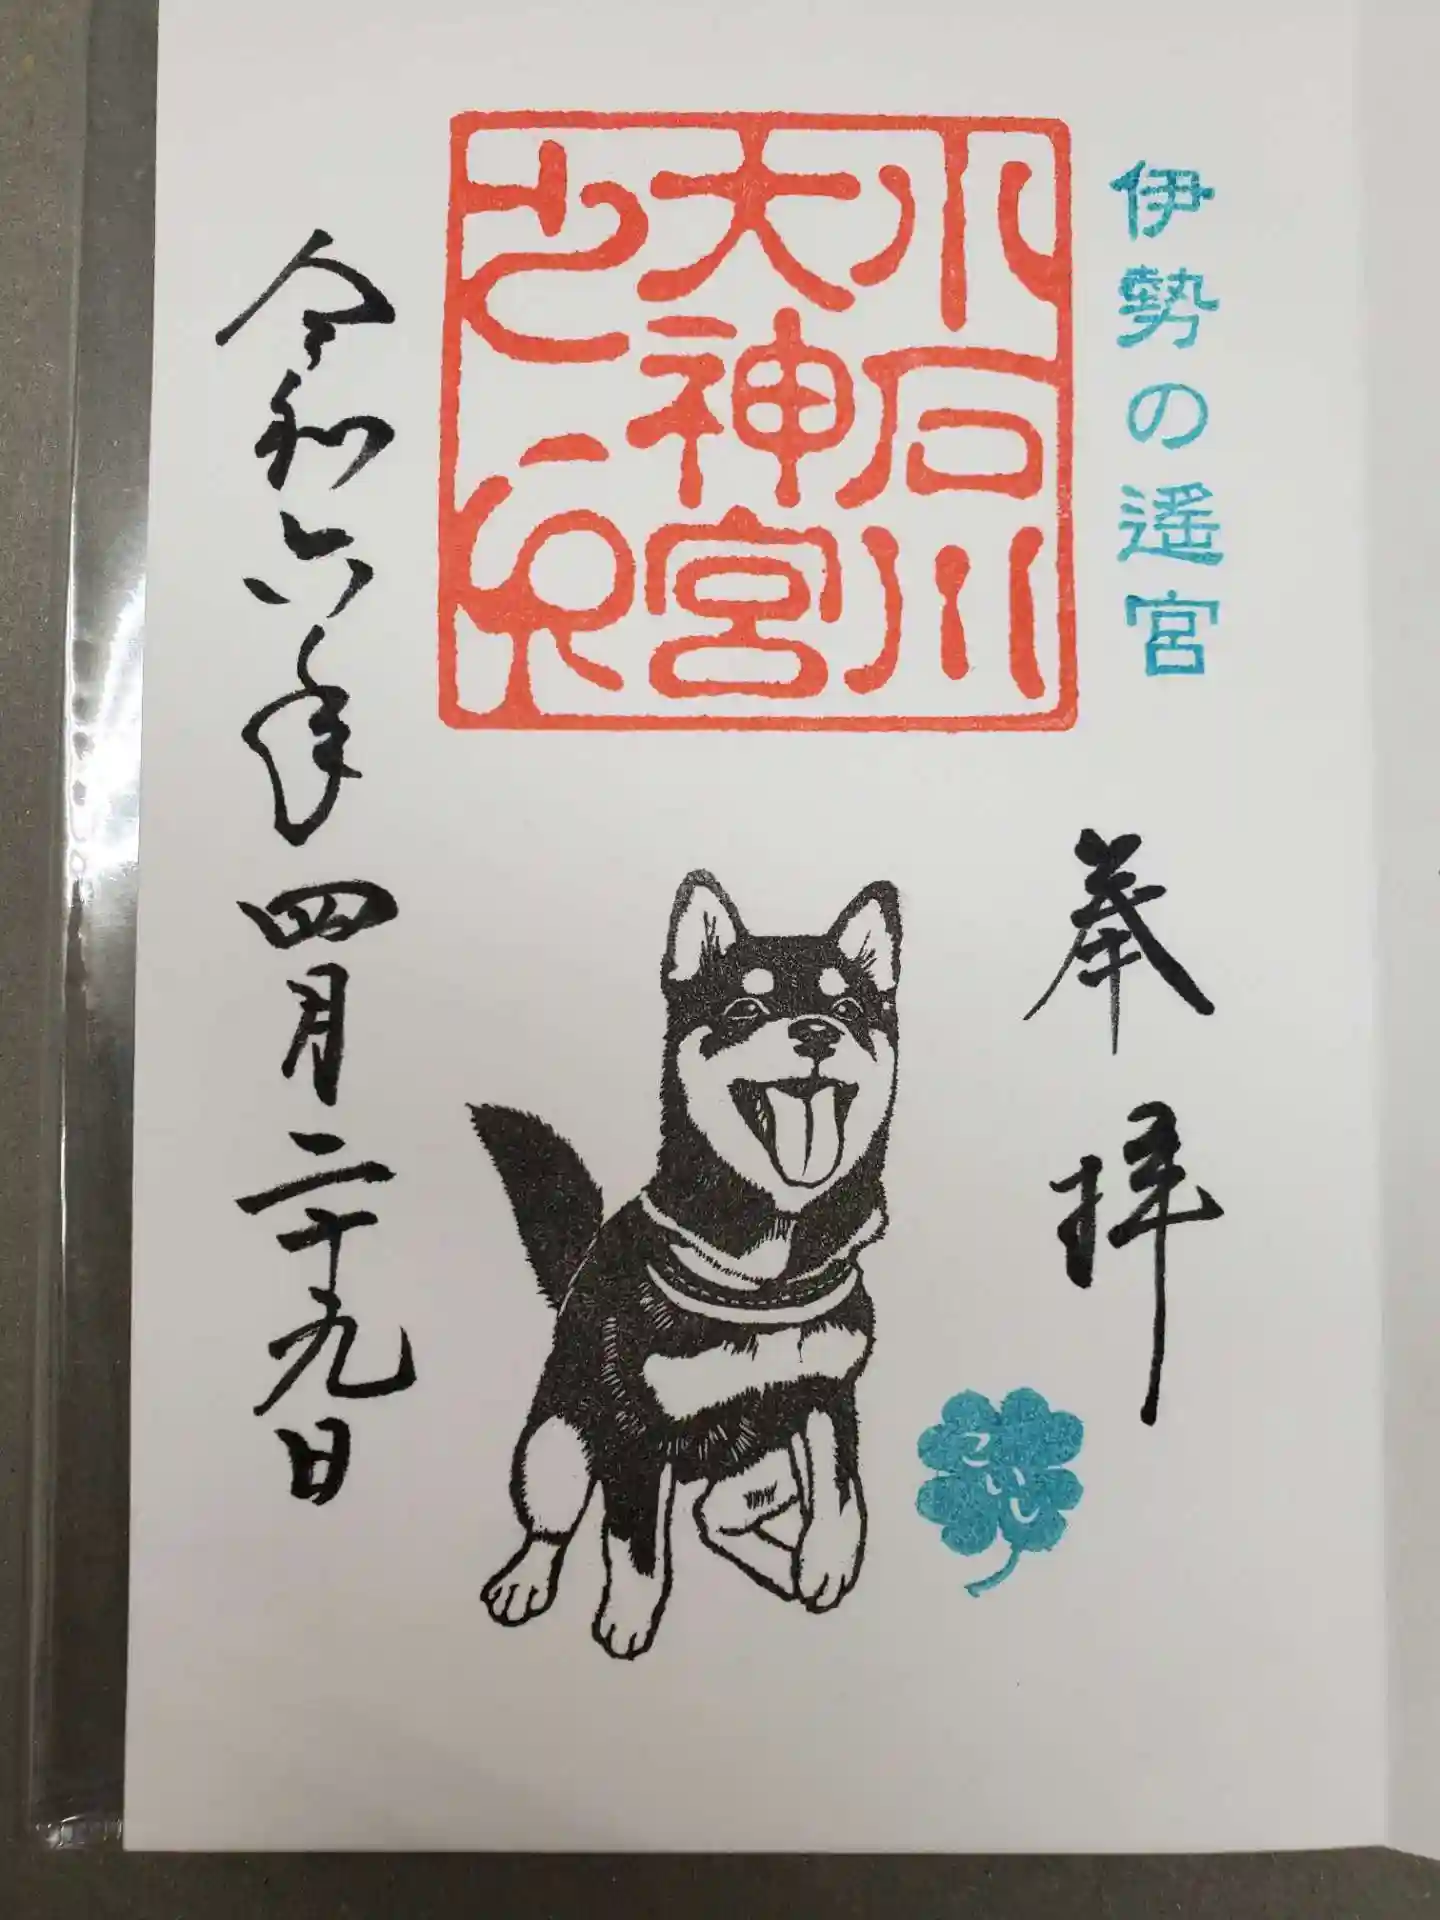 伊勢の遥宮
奉拝
小石川
大神宮
之印
こいし
令和六年四月二十九日